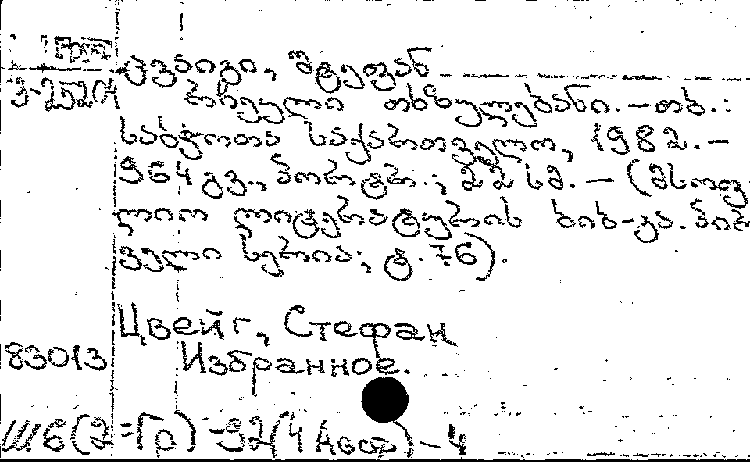 Груз
З-25204
ცვაიგი, შტეფან
რჩეული თხზულებანი. – თბ.:
საბჭოთა საქართველო, 1982. –
964 გვ., პორტრ.; 22 სმ. – (მსოფ-
ლიო ლიტერატურის ბიბ-კა. პირ
ველი სერია; ტ. 76).
Цвейг, Стефан
83013 Избранное.
Ш6(2=Гр)-92(4 Авф)-4